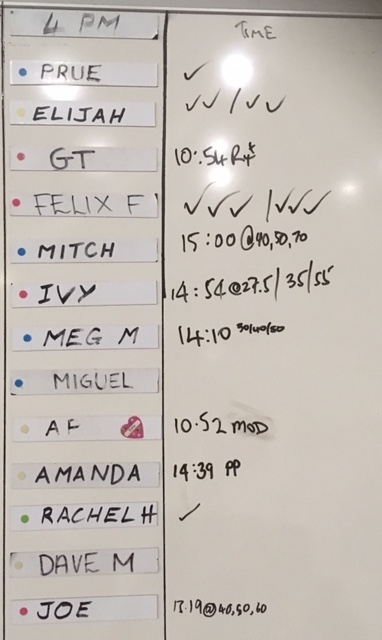 4 PM TIME
PRUE ✓
ELIJAH ✓✓/✓✓
GT 10:54 RX
FELIX F ✓✓✓/✓✓✓
MITCH 15:00@40,50,70
IVY 14:54@27.5/35/55
MEG M 14:10 30/40/50
MIGUEL
AF 10.52 MOD
AMANDA 14:39 PP
RACHEL H ✓
DAVE M
JOE 17.19@40,50,60